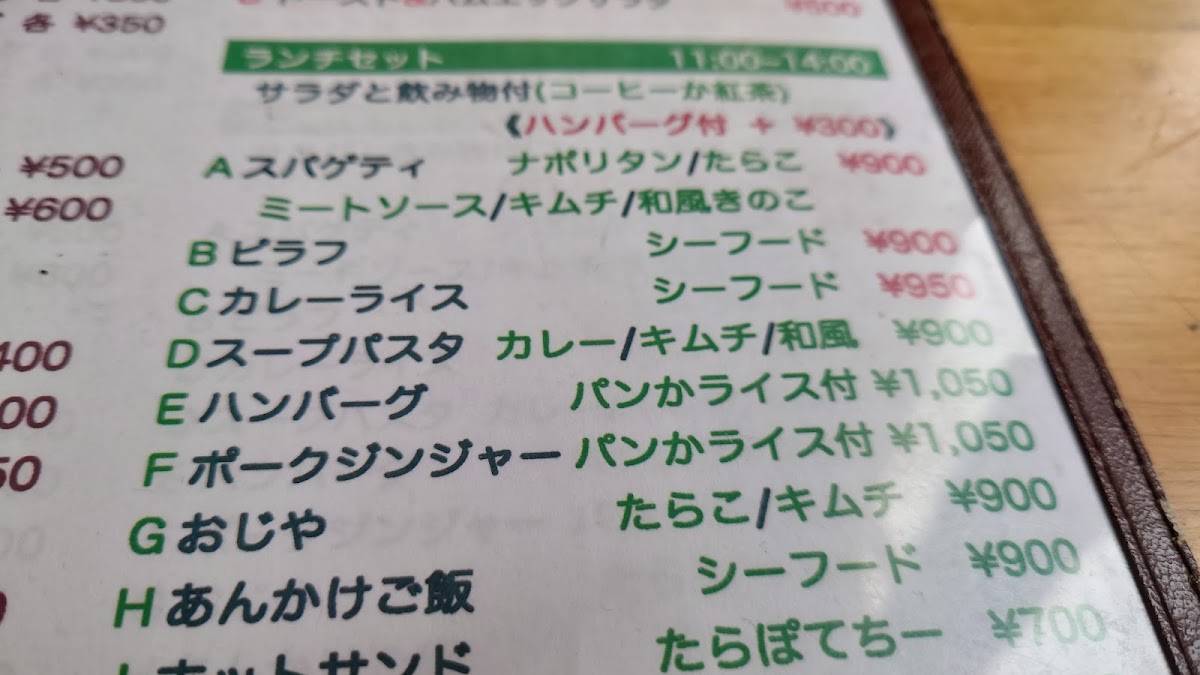 各 ¥350
¥500
ランチセット 11:00-14:00
サラダと飲み物付(コーヒーか紅茶)
《ハンバーグ付 + ¥300》
¥500
¥600
A スパゲティ ナポリタン/たらこ ¥900
ミートソース/キムチ/和風きのこ
B ピラフ シーフード ¥900
C カレーライス シーフード ¥950
D スープパスタ カレー/キムチ/和風 ¥900
E ハンバーグ パンかライス付 ¥1,050
F ポークジンジャー パンかライス付 ¥1,050
G おじや たらこ/キムチ ¥900
H あんかけご飯 シーフード ¥900
I ホットサンド たらぽてちー ¥700